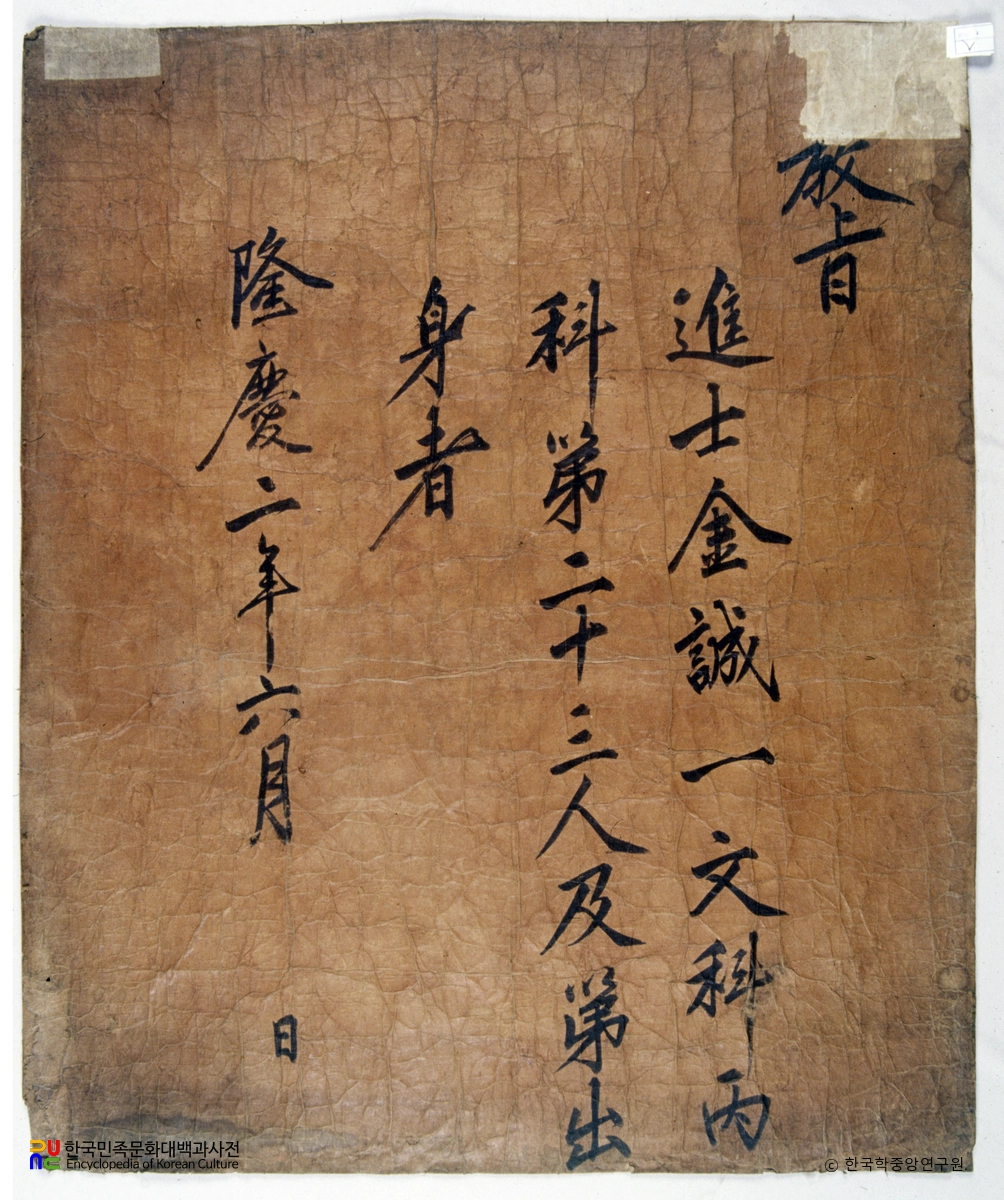 敎旨
進士金誠一文科丙
科第二十三人及第出
身者
隆慶二年六月 日
한국민족문화대백과사전
Encyclopedia of Korean Culture
© 한국학중앙연구원